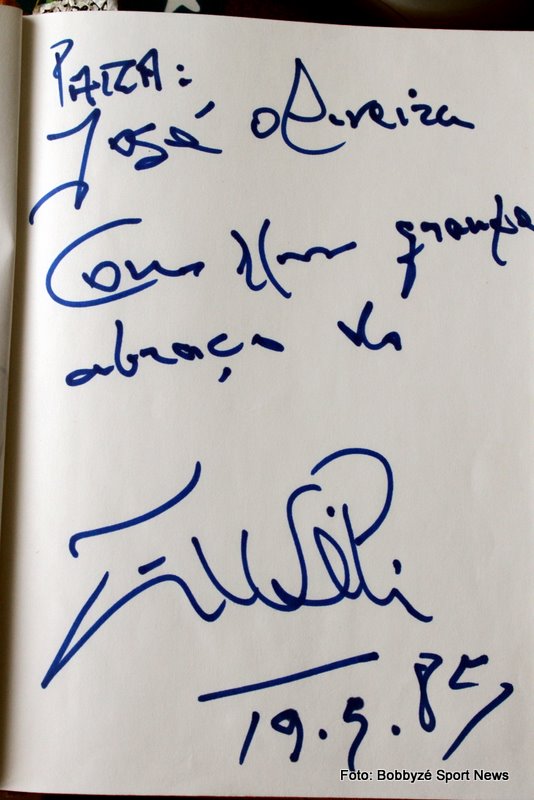 PARA:
José Oliveira
Com um grande
abraço do
19.5.85
Foto: Bobbyzé Sport News